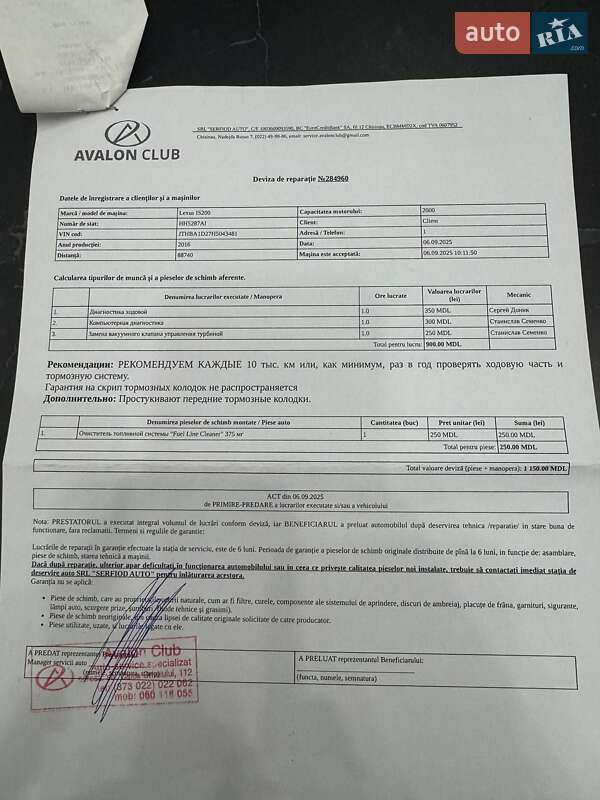 auto RIA.com
AVALON CLUB
SRL "SERFIOD AUTO", C/F 1003600093590, BC "EuroCreditBank" SA, fil 12 Chisinau, ECBMMD2X, cod TVA 0607952
Chisinau, Nadejda Russo 7, (022)-49-88-86, email: service.avalonclub@gmail.com
Deviza de reparație №284960
Datele de înregistrare a clienților și a mașinilor
Marcă / model de mașina: Lexus IS200 Capacitatea motorului: 2000
Număr de stat: HH5287AI Client: Client
VIN cod: JTHBA1D27H5043481 Adresă / Telefon: 1
Anul producției: 2016 Data: 06.09.2025
Distanță: 88740 Mașina este acceptată: 06.09.2025 10:11:50
Calcularea tipurilor de muncă și a pieselor de schimb aferente.
Denumirea lucrarilor executate / Manopera Ore lucrate Valoarea lucrarilor (lei) Mecanic
1. Диагностика ходовой 1.0 350 MDL Сергей Доник
2. Компьютерная диагностика 1.0 300 MDL Станислав Семенко
3. Замена вакуумного клапана управления турбиной 1.0 250 MDL Станислав Семенко
Total pentru lucru: 900.00 MDL
Рекомендации: РЕКОМЕНДУЕМ КАЖДЫЕ 10 тыс. км или, как минимум, раз в год проверять ходовую часть и
тормозную систему.
Гарантия на скрип тормозных колодок не распространяется
Дополнительно: Простукивают передние тормозные колодки.
Denumirea pieselor de schimb montate / Piese auto Cantitatea (buc) Pret unitar (lei) Suma (lei)
1. Очиститель топливной системы "Fuel Line Cleaner" 375 мг 1 250 MDL 250.00 MDL
Total pentru piese: 250.00 MDL
Total valoare deviză (piese + manopera): 1 150.00 MDL
ACT din 06.09.2025
de PRIMIRE-PREDARE a lucrarilor executate si/sau a vehiculului
Nota: PRESTATORUL a executat integral volumul de lucrări conform deviză, iar BENEFICIARUL a preluat automobilul după deservirea tehnica /reparatie/ in stare buna de
functionare, fara reclamatii. Termeni si regulile de garantie:
Lucrările de reparații în garanție efectuate la stația de serviciu, este de 6 luni. Perioada de garanție a pieselor de schimb originale distribuite de pînă la 6 luni, in funcție de: asamblare,
piese de schimb, starea tehnică a mașinii.
Dacă după reparație, ulterior apar deficultați in funcționarea automobilului sau in ceea ce privește calitatea pieselor noi instalate, trebuie să contactați imediat stația de
deservire auto SRL "SERFIOD AUTO" pentru înlăturarea acestora.
Garanția nu se aplică:
Piese de schimb, care au propri uzurii naturale, cum ar fi filtre, curele, componente ale sistemului de aprindere, discuri de ambreiaj, placuțe de frâna, garnituri, sigurante,
lămpi auto, scurgere prize, tehnice și grasimi).
Piese de schimb neoriginale, lipsei de calitate originale solicitate de catre producator.
Piese utilizate, uzate, si lucrarile legate cu ele.
A PREDAT reprezentantul
Manager servicii auto
A PRELUAT reprezentantul Beneficiarului:
(functa, numele, semnatura)
Avalon Club
112
(373 022) 022 062
mob: 060 116 055